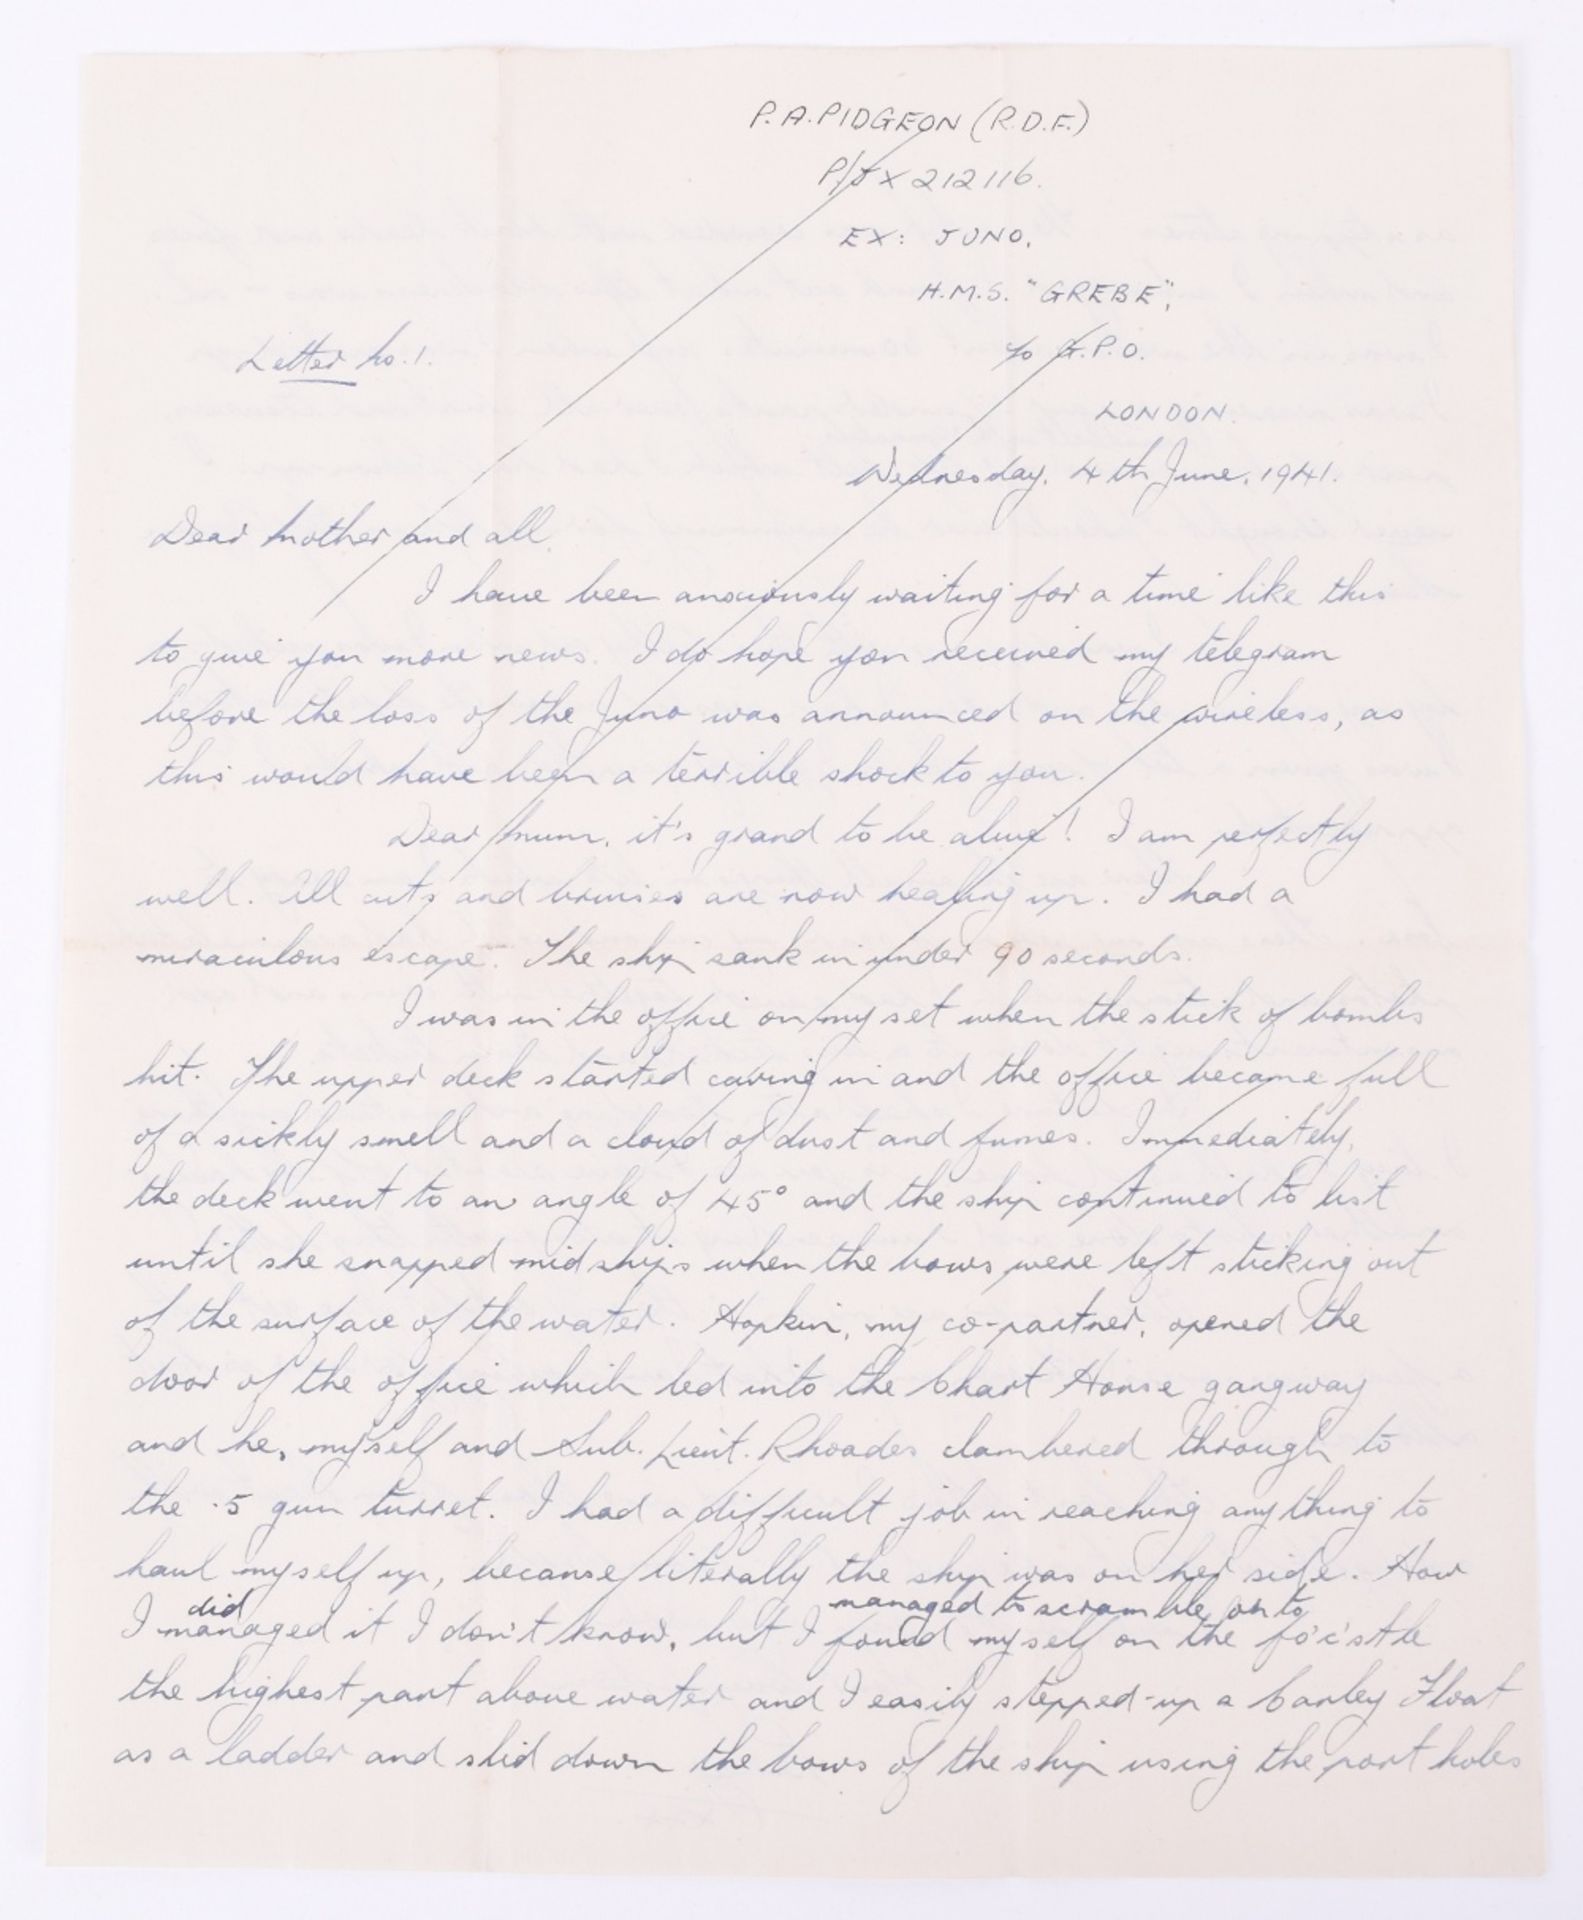 P.A.PIDGEON (R.D.F.)
P/JX 212116.
EX: JUNO.
H.M.S. "GREBE",
Letter No.1.
c/o G.P.O.
LONDON.
Wednesday. 4th June. 1941.
Dear Mother and all.
I have been anxiously waiting for a time like this
to give you more news. I do hope you received my telegram
before the loss of the Juno was announced on the wireless, as
this would have been a terrible shock to you.
Dear Mum, it's grand to be alive! I am perfectly
well. All cuts and bruises are now healing up. I had a
miraculous escape. The ship sank in under 90 seconds.
I was in the office on my set when the stick of bombs
hit. The upper deck started caving in and the office became full
of a sickly smell and a cloud of dust and fumes. Immediately,
the deck went to an angle of 45° and the ship continued to list
until she snapped midships when the bows were left sticking out
of the surface of the water. Hopkin, my co-partner, opened the
door of the office which led into the Chart House gangway
and he, myself and Sub. Lieut. Rhoades clambered through to
the .5 gun turret. I had a difficult job in reaching anything to
haul myself up, because literally the ship was on her side. How
did managed to scramble on to
I managed it I don't know, but I found myself on the fo'c'stle
the highest part above water and I easily stepped-up a Carley Float
as a ladder and slid down the bows of the ship using the port holes